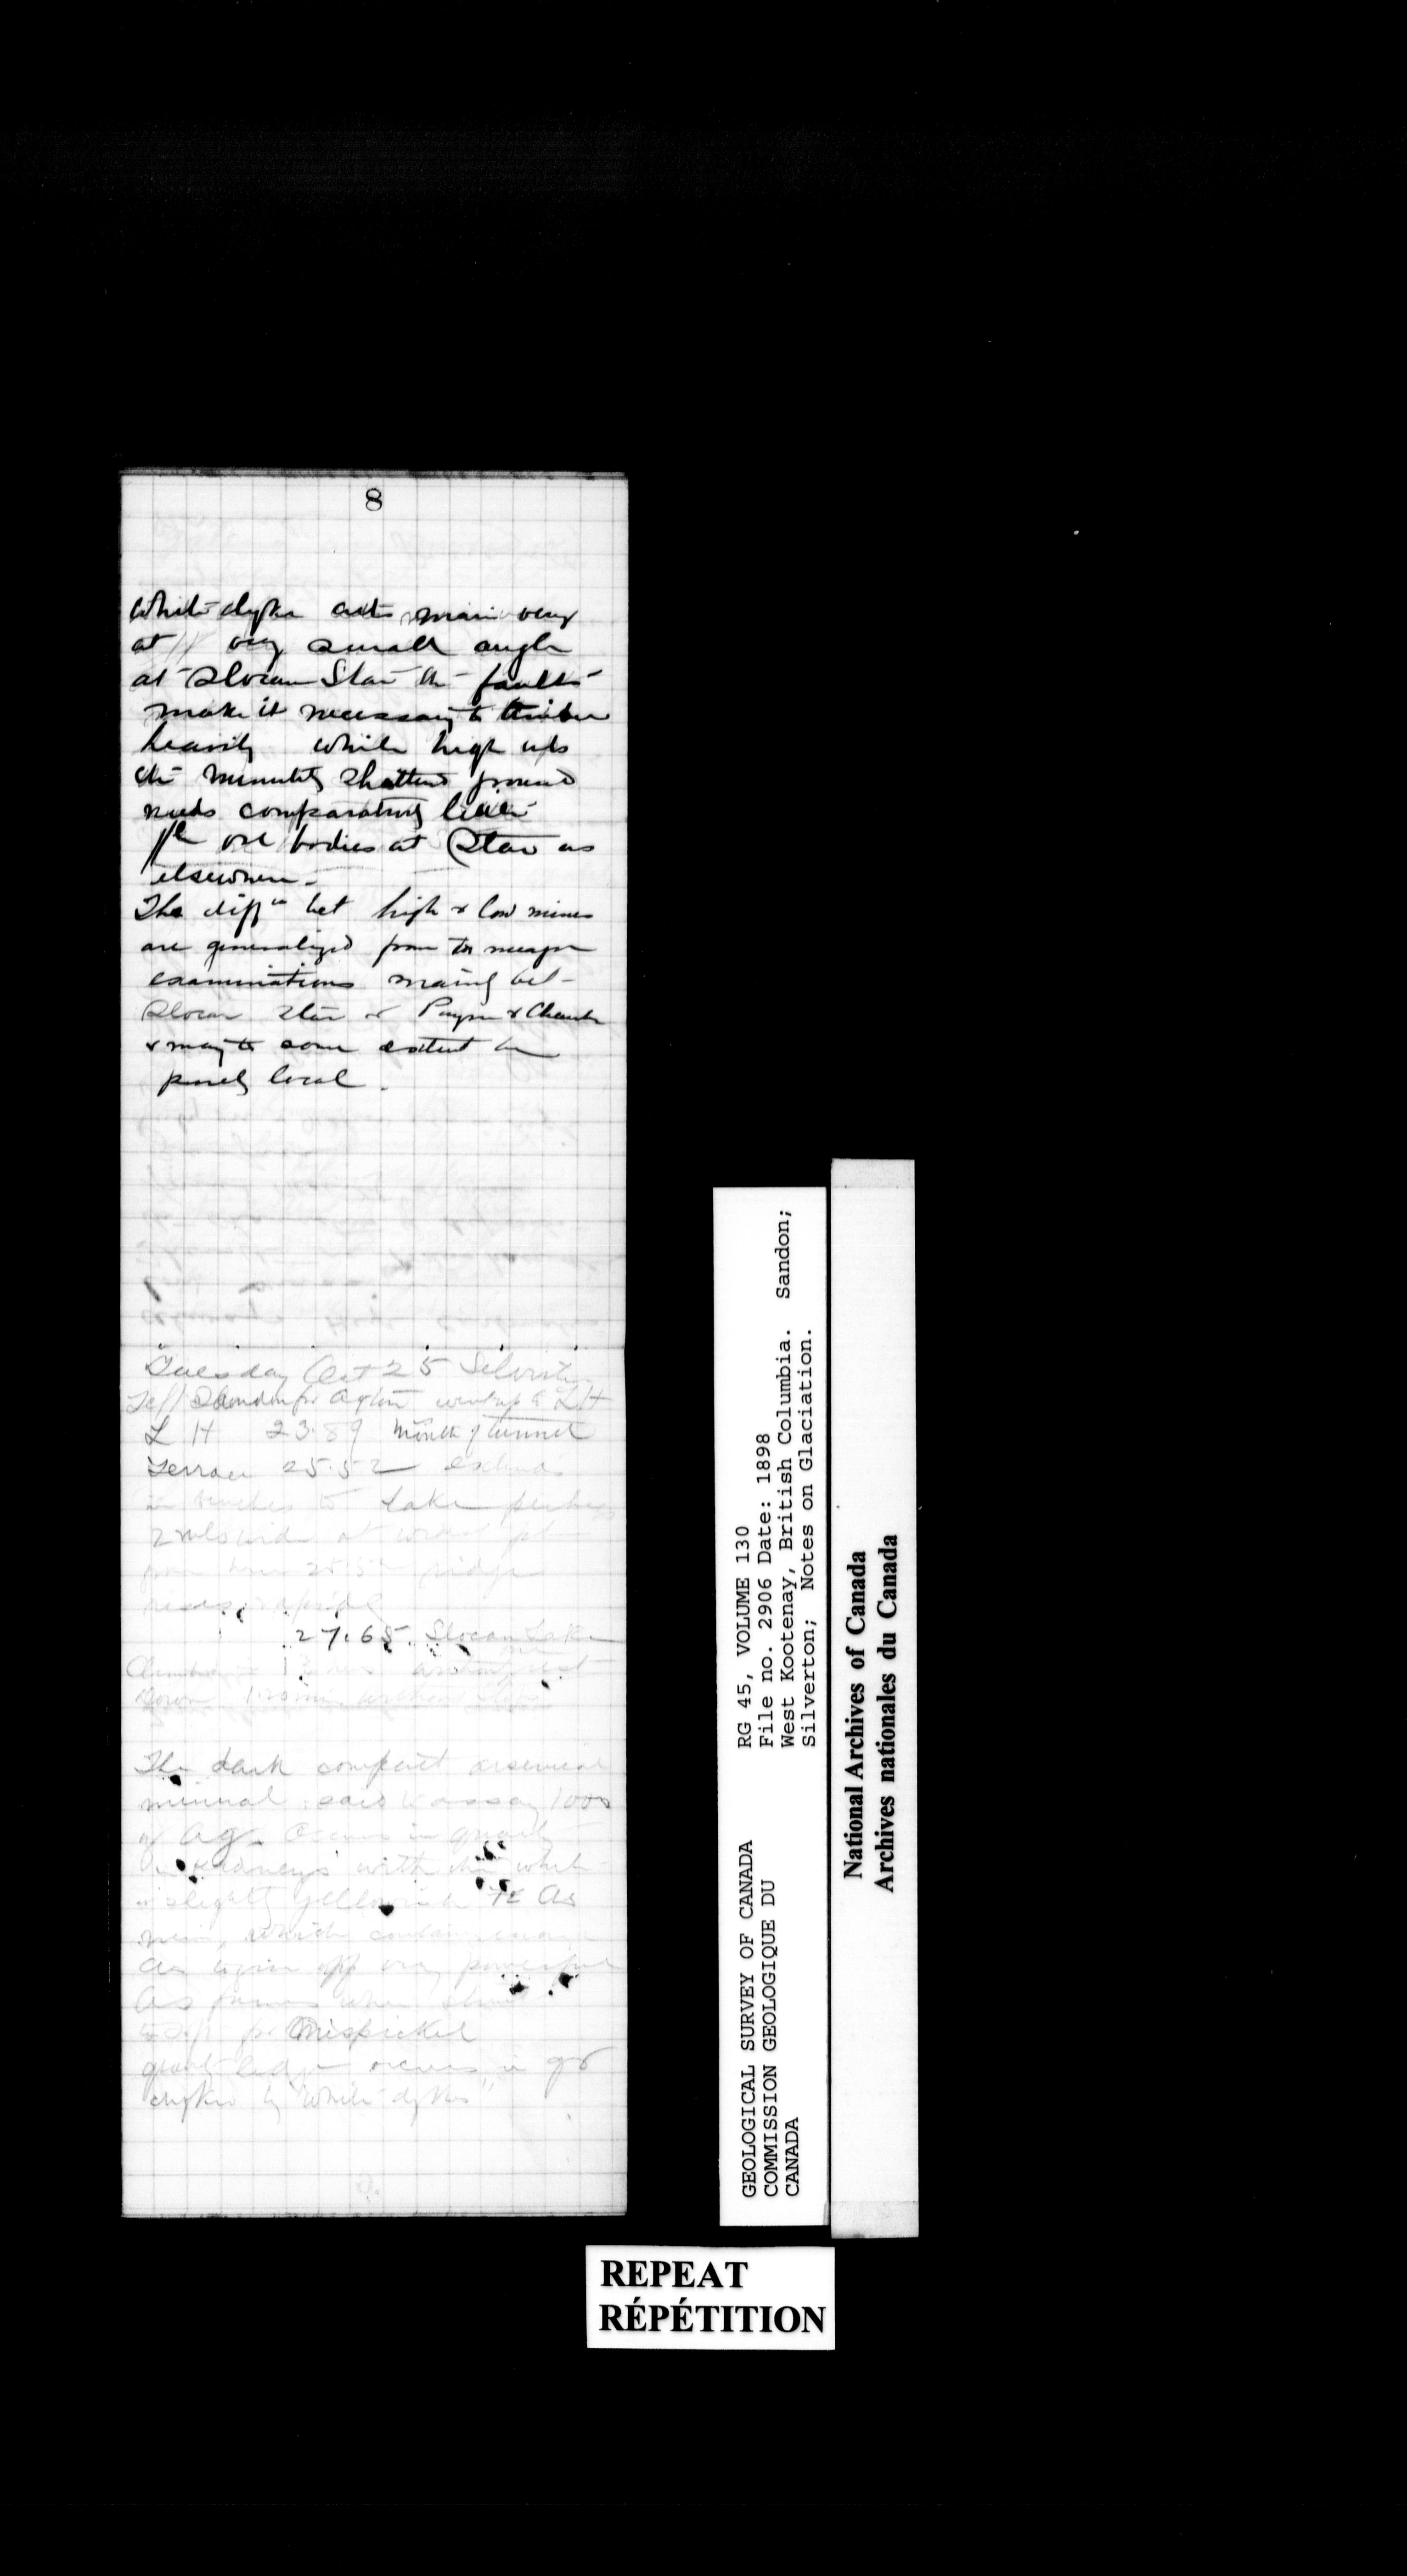 8
White dyke cuts main vein
at // very small angle
at Slocan Star the faults
make it necessary to timber
heavily while high up
the minutely shattered ground
needs comparatively little
//el ore bodies at Star as
elsewhere.
The diffce bet high & low mines
are generalized from too meagre
examinations mainly bet
Slocan Star & Payne &
& may to some extent be
purely local.
Tuesday Oct 25 Silverton
Left Sandon for went up to L H
L H 23.89 Mouth of tunnel
Terrace 25.52 extends
in benches to Lake perhaps
2 mls wide at widest pt
from 25.5 ridge
rises rapidly
27.65 Slocan Lake
Down 1.20 min without stops
The dark compact arsenical
mineral said to assay 1000
Ag. Occurs in quartz
in kidneys with the white
or slightly yellowish As
min, which contains enough
As to give off very powerful
As fumes when struck
Mispickel
quartz ledge occurs in
by "white dykes"
GEOLOGICAL SURVEY OF CANADA
COMMISSION GEOLOGIQUE DU
CANADA
RG 45, VOLUME 130
File no. 2906 Date: 1898
West Kootenay, British Columbia. Sandon;
Silverton; Notes on Glaciation.
National Archives of Canada
Archives nationales du Canada
REPEAT
RÉPÉTITION